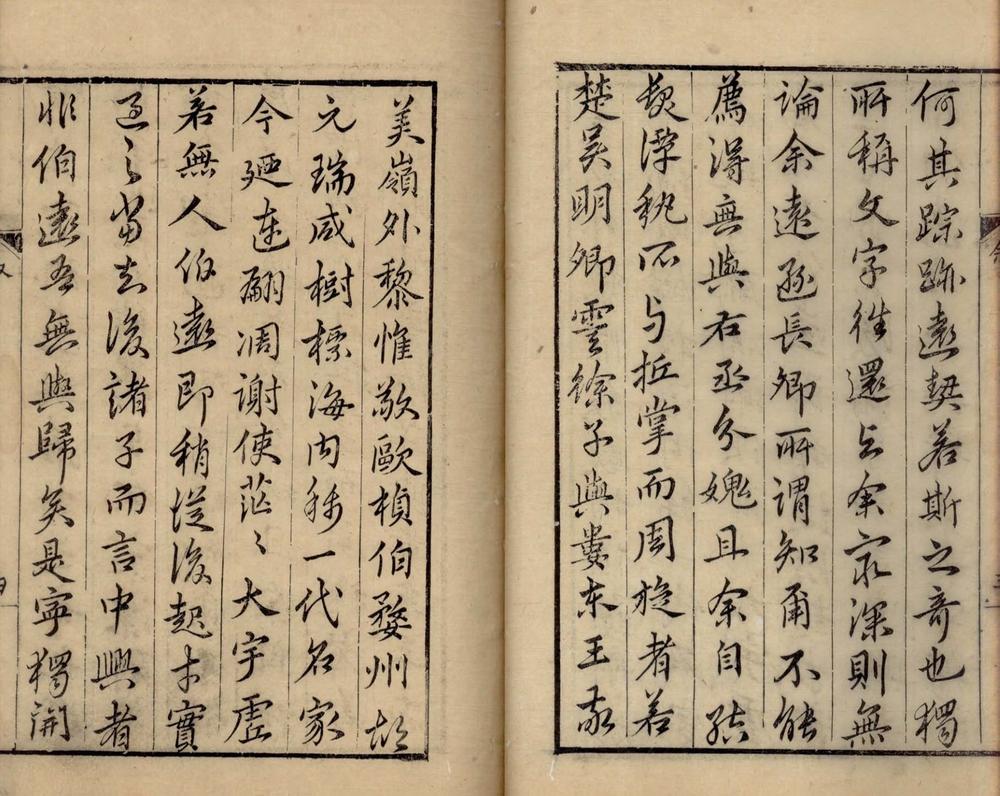 何其踪跡遠契若斯之奇也獨
所稱文字往還與余最深則無
論余遠遜長卿所謂知爾不能
薦得無與右丞分媿且余自結
髮浮執不与抵掌而周旋者若
楚吳明卿雲餘子與婁東王敬
美嶺外黎惟敬歐楨伯婺州胡
元瑞咸樹標海內稱一代名家
今迺連翩凋謝使茫〻大宇虛
若無人伯遠即稍從後起才實
過之當去後諸子而言中興者
非伯遠吾無與歸矣是寧獨開